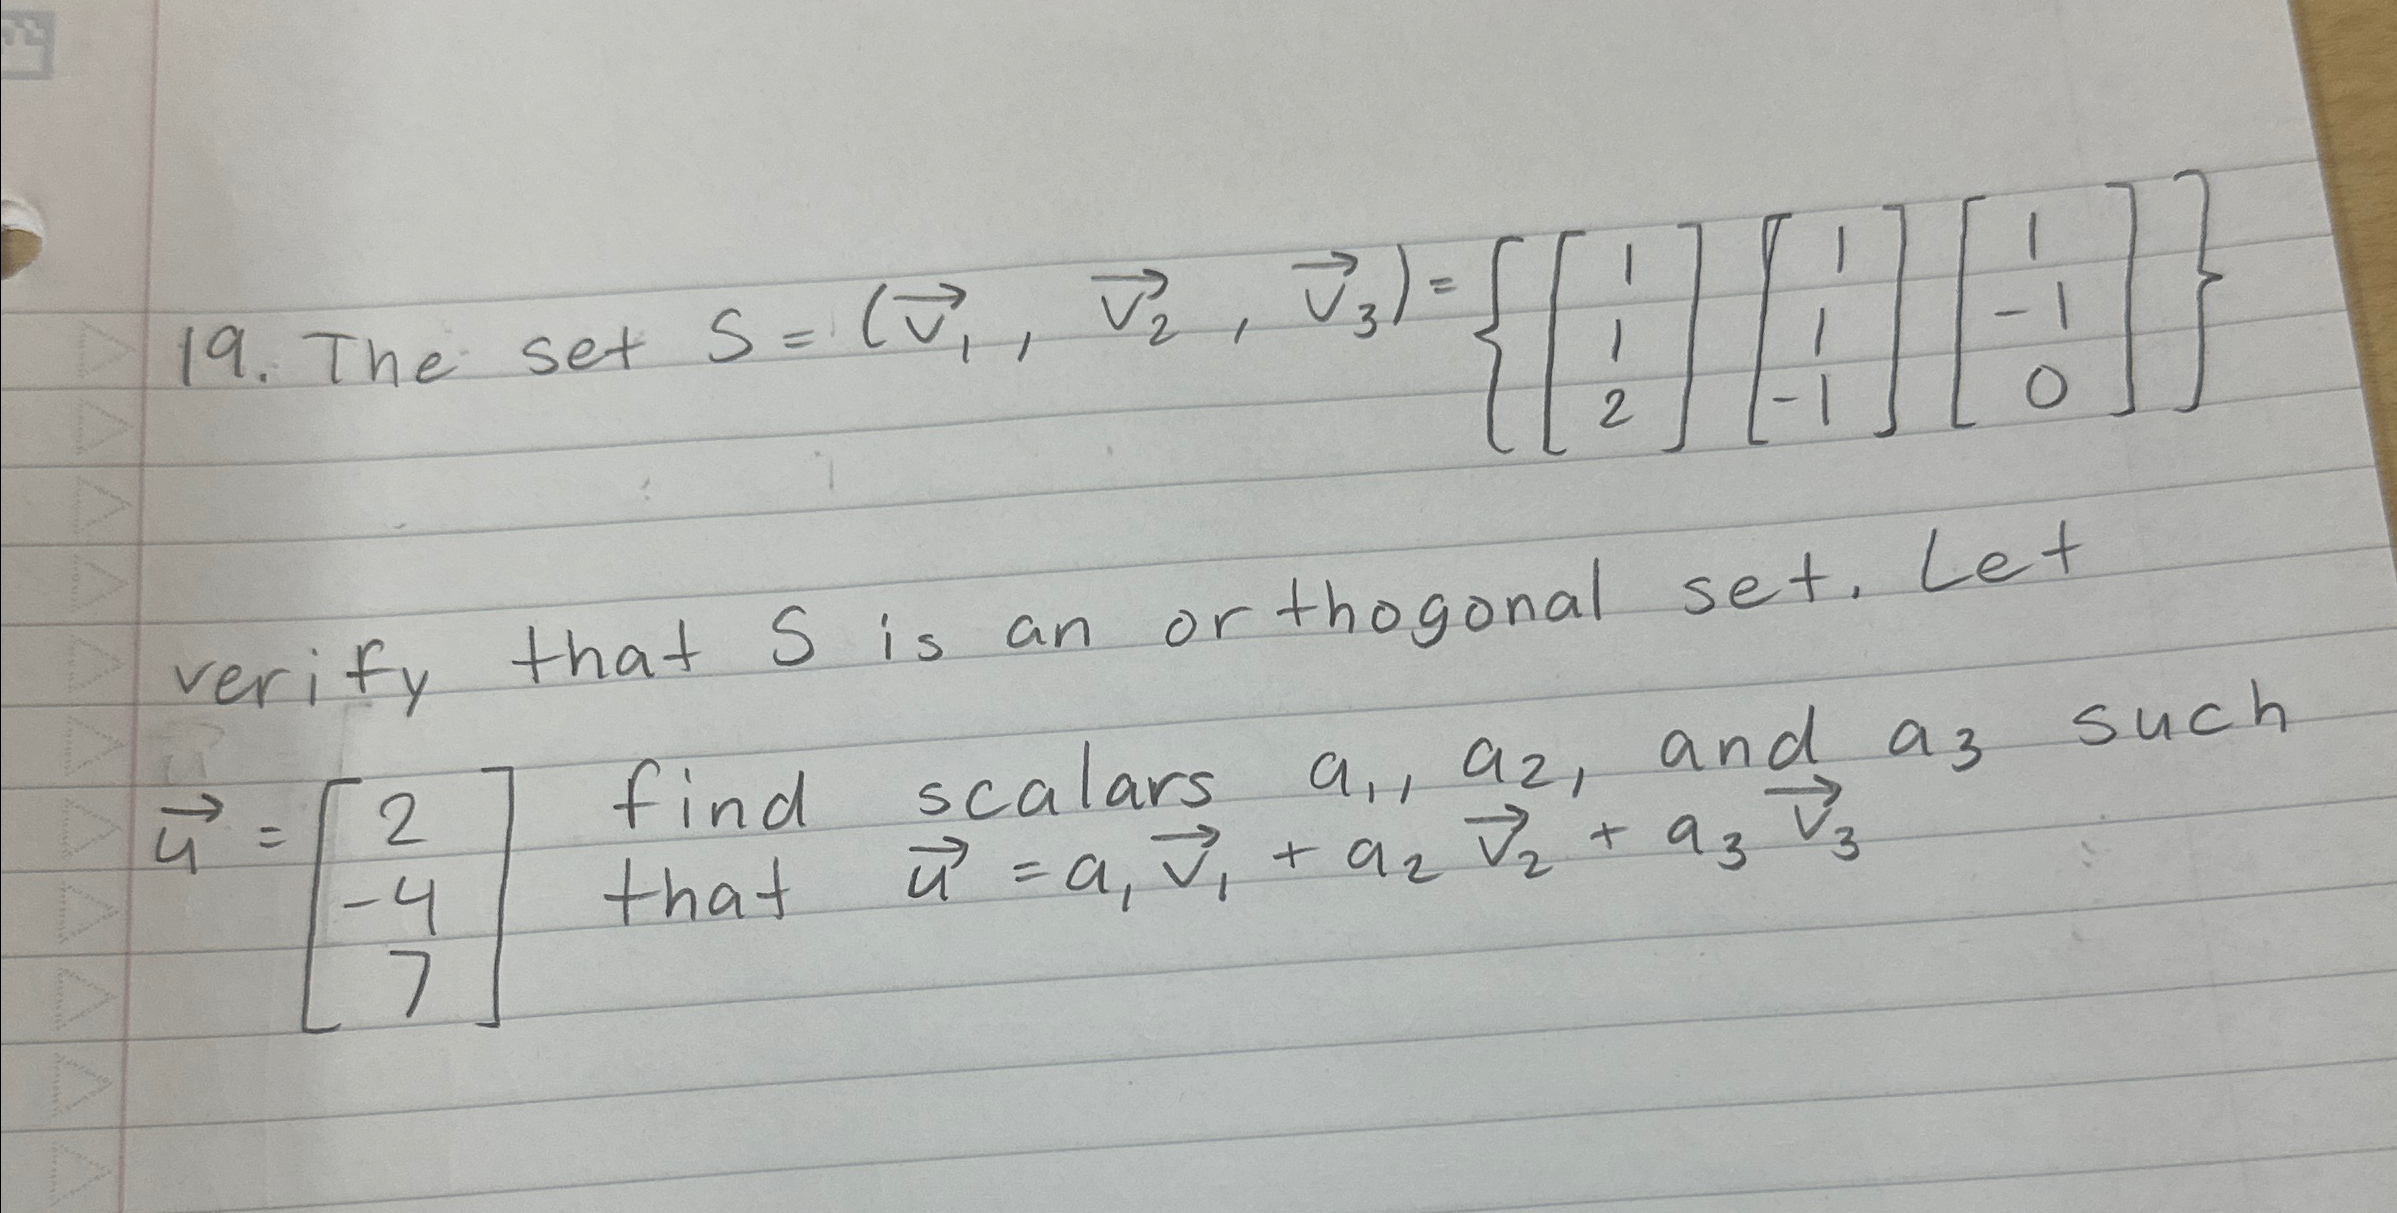 19. The set S = (v⃗₁, v⃗₂, v⃗₃) = { [1 1 2] [1 1 -1] [1 -1 0] }
verify that S is an orthogonal set. Let
u⃗ = [2 -4 7] find scalars a₁, a₂, and a₃ such
that u⃗ = a₁v⃗₁ + a₂v⃗₂ + a₃v⃗₃